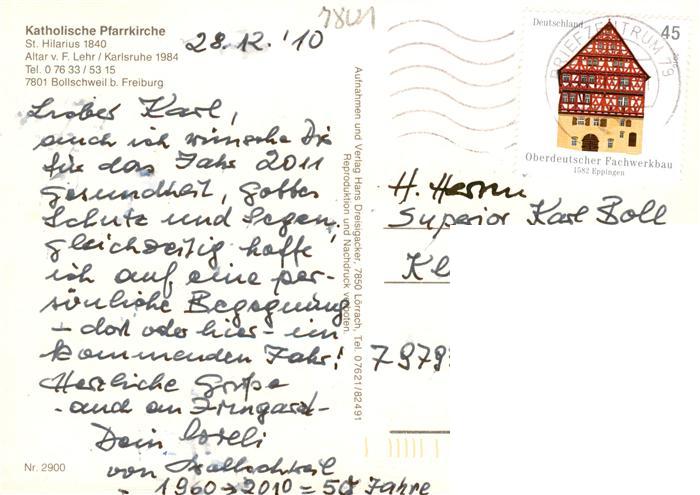 7801
Katholische Pfarrkirche
St. Hilarius 1840
Altar v. F. Lehr / Karlsruhe 1984
Tel. 0 76 33 / 53 15
7801 Bollschweil b. Freiburg
28.12.'10
Lieber Karl,
auch ich wünsche Dir
für das Jahr 2011
Gesundheit, Gottes
Schutz und Segen,
gleichzeitig hoffe
ich auf eine per-
sönliche Begegnung
- dort oder hier - im
kommenden Jahr!
Herzliche Grüße
- auch an Irmgard -
Dein
von Bollschweil
- 1960 → 2010 = 50 Jahre
Nr. 2900
Aufnahmen und Verlag Hans Dreisigacker, 7850 Lörrach, Tel. 07621/82491
Reproduktion und Nachdruck verboten.
Deutschland
45
2010
BRIEFZENTRUM 79
Oberdeutscher Fachwerkbau
1582 Eppingen
H. Herrn
Superior Karl Boll
Kl
7979